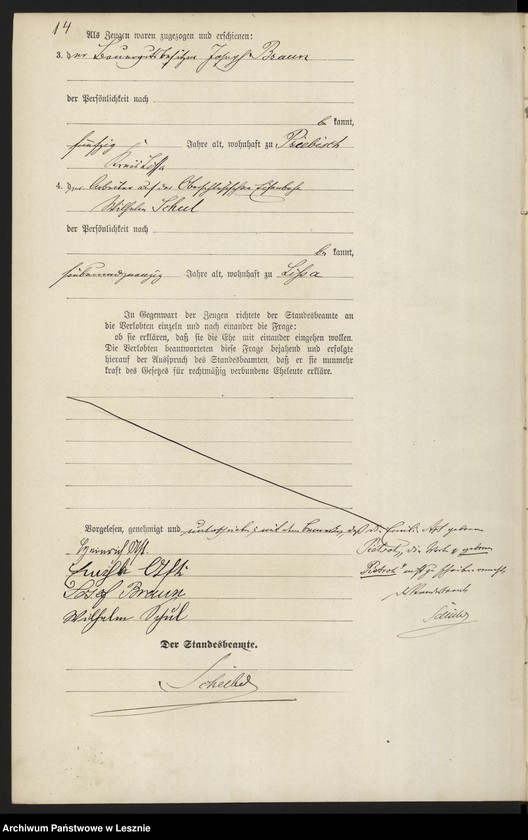 14
Als Zeugen waren zugezogen und erschienen:
3. der Bauergutsbesitzer Joseph Braun
der Persönlichkeit nach
be kannt,
fünfzig Jahre alt, wohnhaft zu Priebisch
Kreis Lissa
4. der Arbeiter auf der Oberschlesischen Eisenbahn
Wilhelm Schul
der Persönlichkeit nach
be kannt,
siebenundzwanzig Jahre alt, wohnhaft zu Lissa
In Gegenwart der Zeugen richtete der Standesbeamte an
die Verlobten einzeln und nach einander die Frage:
ob sie erklären, daß sie die Ehe mit einander eingehen wollen.
Die Verlobten beantworteten diese Frage bejahend und erfolgte
hierauf der Ausspruch des Standesbeamten, daß er sie nunmehr
kraft des Gesetzes für rechtmäßig verbundene Eheleute erkläre.
Vorgelesen, genehmigt und unterschrieben, mit dem Bemerken, daß die Emilie geborene
die Worte geborene
Heinrich
Josef Braun
Wilhelm Schul
Der Standesbeamte
Scheibel
Der Standesbeamte.
Scheibel
Archiwum Państwowe w Lesznie